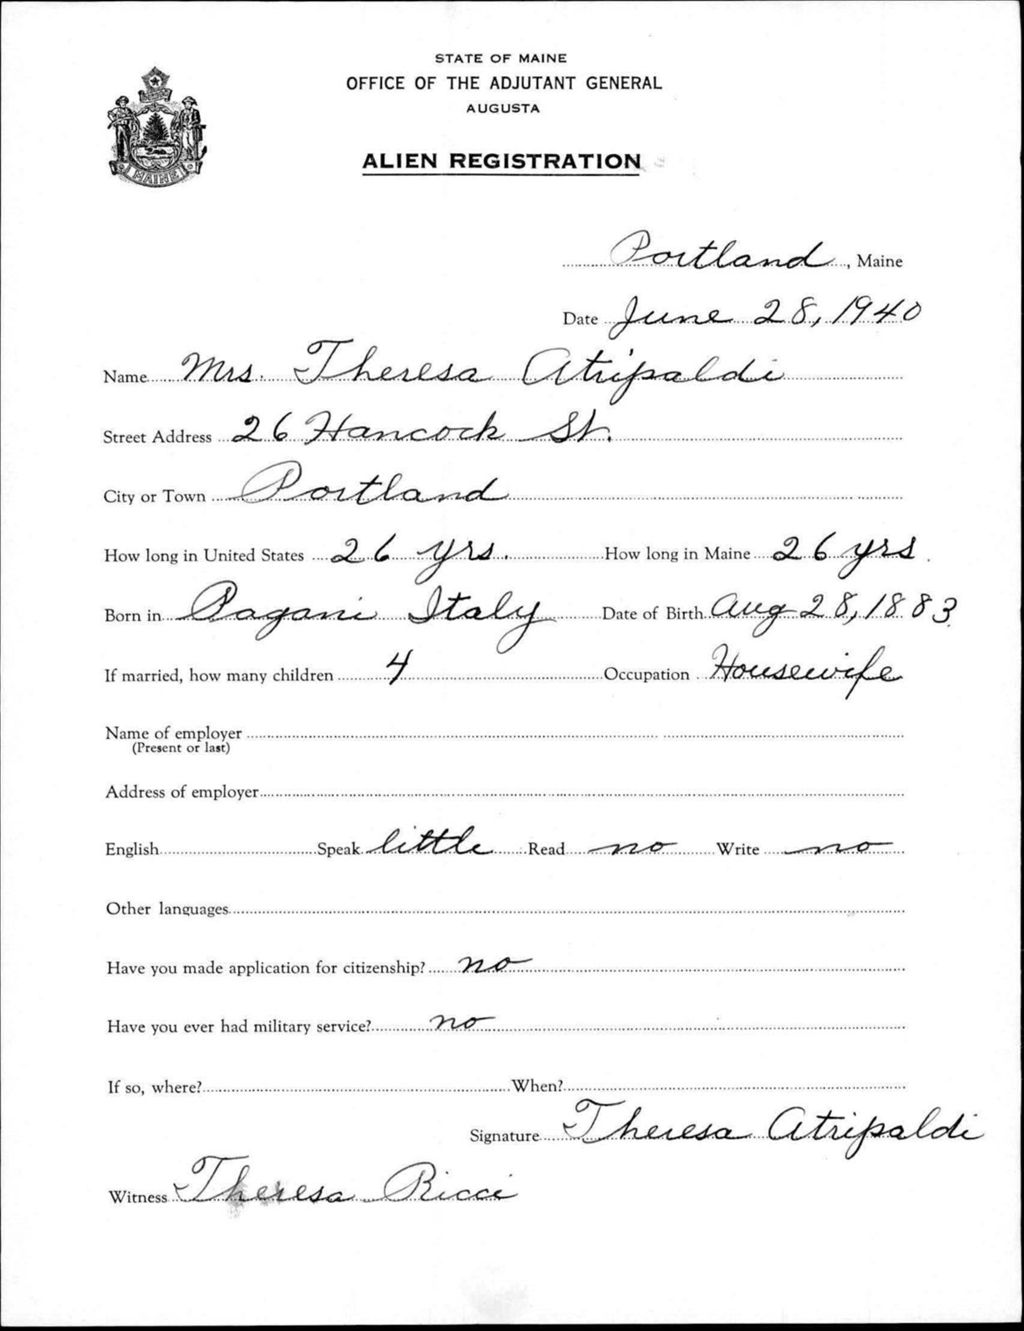 STATE OF MAINE
OFFICE OF THE ADJUTANT GENERAL
AUGUSTA
MAINE
ALIEN REGISTRATION
Portland, Maine
Date June 28, 1940
Name Mrs. Theresa Atripaldi
Street Address 26 Hancock St.
City or Town Portland
How long in United States 26 yrs. How long in Maine 26 yrs.
Born in Pagani Italy Date of Birth Aug 28, 1883
If married, how many children 4 Occupation Housewife
Name of employer
(Present or last)
Address of employer
English Speak little Read no Write no
Other languages
Have you made application for citizenship? no
Have you ever had military service? no
If so, where? When?
Signature Theresa Atripaldi
Witness Theresa Ricci